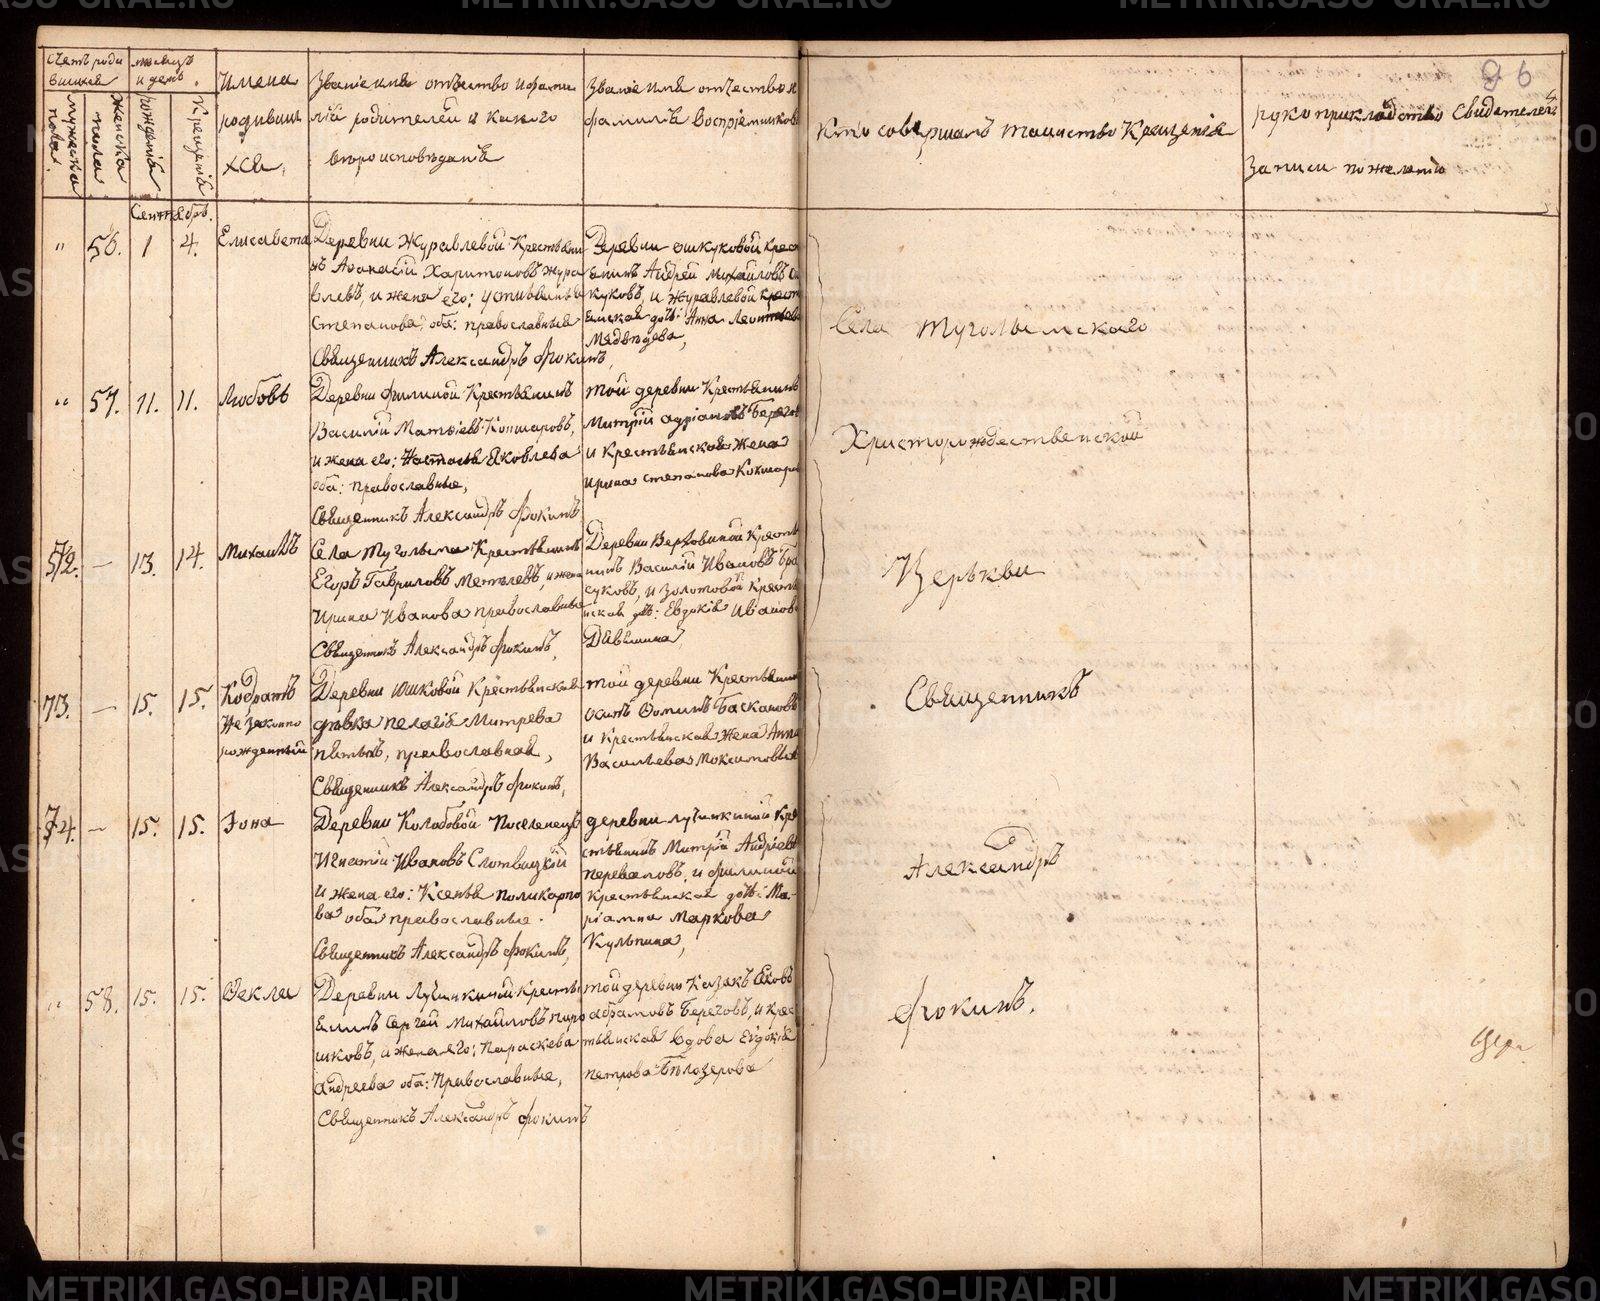 METRIKI.GASO-URAL.RU
96
Счетъ роди
вшихся
мужеска пола.
женска пола
месяцъ
и день.
рожденія
крещенія
Имена
родивши
хся.
Званіе имя отчество и фами
лія родителей и какого
вероисповѣданія
Званіе имя отчество и
фамилія воспріемниковъ
Кто совершалъ таинство Крещенія
рукоприкладство свидетелей
записи по желанію
Сентябрь.
" 56. 1 4. Елисавета
Деревни Журавлевой Крестьяни
нъ Аѳанасій Харитоновъ Жура
влевъ, и жена его: Устинья
Степанова, оба: православные
Священникъ Александръ Фокинъ,
Деревни Ошкуковой Крест
янинъ Андрей Михайловъ
куковъ, и Журавлевой крест
янская дочь: Анна Леонтьева
Медвѣдева,
" 57. 11. 11. Любовь
Деревни Филиной Крестьянинъ
Василій Матвіевъ Кокшаровъ,
и жена его: Настасья Яковлева
оба: православные,
Священникъ Александръ Фокинъ
той деревни Крестьянинъ
Митрій Адріановъ Берегов
и Крестьянская жена
Ирина Степанова Кокшаро
72. — 13. 14. Михаилъ
Села Туголыма Крестьянинъ
Егоръ Гавриловъ Метелевъ, и жена
Ирина Иванова православные
Священникъ Александръ Фокинъ,
Деревни Верховиной Кресть
нинъ Василій Ивановъ
суковъ, и Золотовой Кресть
янская дочь: Евдокія Иванов
73. — 15. 15. Кодратъ
Незаконно
рожденный
Деревни Юшковой Крестьянская
дѣвка Пелагія Митрева
православная,
Священникъ Александръ Фокинъ,
той деревни Крестьянинъ
Осипъ Ѳоминъ Баскановъ
и Крестьянская жена Анна
Васильева Моксимовыхъ
74. — 15. 15. Іона
Деревни Колобовой Поселенецъ
Игнатій Ивановъ Слотвицкій
и жена его: Ксенья Поликарпо
ва оба православные.
Священникъ Александръ Фокинъ,
деревни Лучинкиной Кре
стьянинъ Митрій Андріевъ
Переваловъ, и Филиной
Крестьянская дочь: Ма-
ріамна Маркова
Кульпина,
" 58. 15. 15. Ѳекла
Деревни Лучинкиной Кресть
янинъ Сергей Михайловъ Пиро
шковъ, и жена его: Параскева
Андреева оба: Православные,
Священникъ Александръ Фокинъ
той деревни Казакъ Яковъ
Абрамовъ Береговъ, и крес
тьянская вдова Евдокія
Петрова Бѣлозерова
Села Туголымскаго
Христорождественской
Церькви
Священникъ
Александръ
Фокинъ.